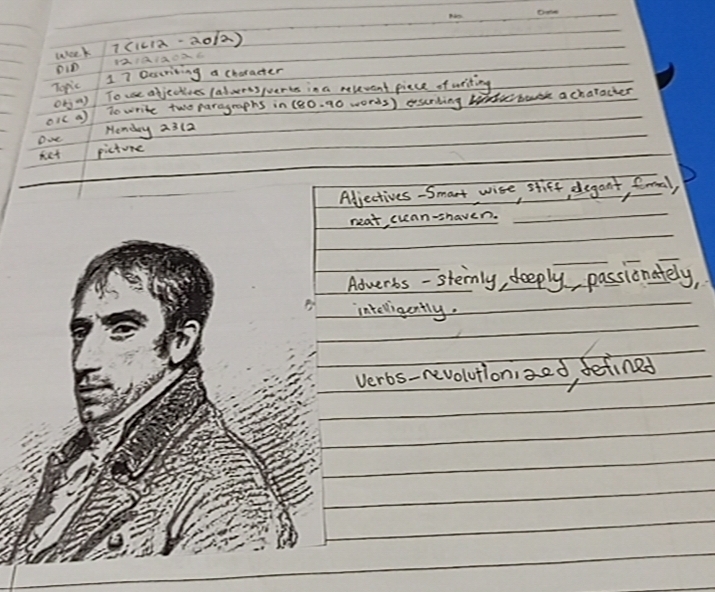 No.
Date
Week 7 (16/2 - 20/2)
DID 12/2/2026
Topic 1.7 Describing a character
Obj a) To use adjectives/adverbs/verbs in a relevant piece of writing
O/C a) To write two paragraphs in (80-90 words) describing a character
Due Monday 23/2
Ref picture
Adjectives - Smart, wise, stiff, elegant, formal,
neat, clean-shaven.
Adverbs - sternly, deeply, passionately,
intelligently.
Verbs - revolutionized, defined